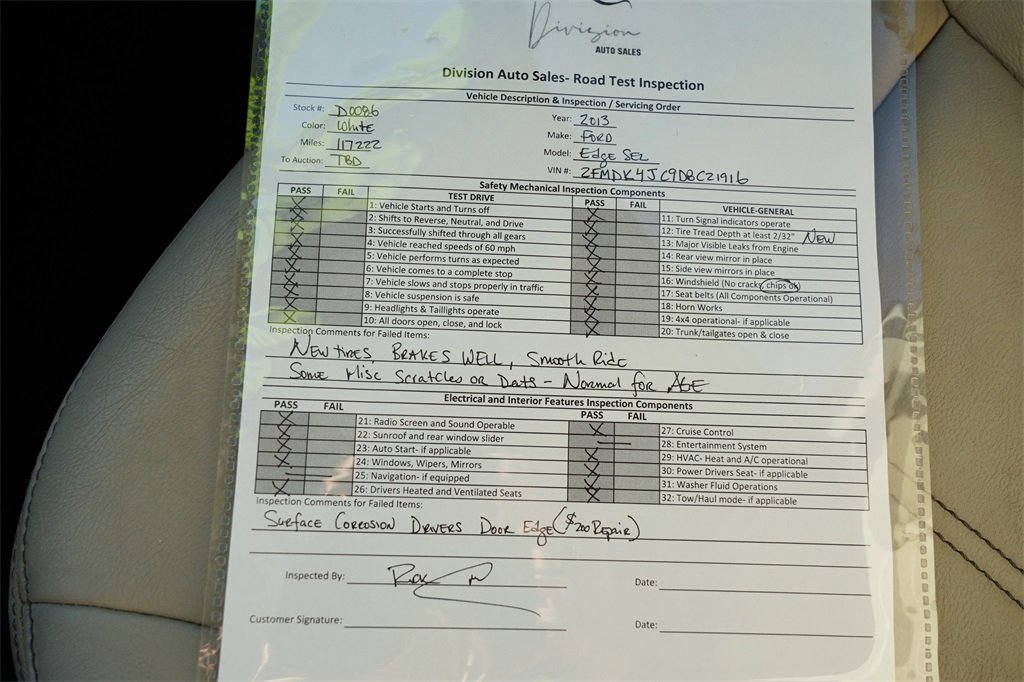 Division
AUTO SALES
Division Auto Sales- Road Test Inspection
Vehicle Description & Inspection / Servicing Order
Stock #: D0086
Year: 2013
Color: White
Make: FORD
Miles: 117222
Model: Edge SEL
To Auction: TBD
VIN #: 2FMDK4JC9DBC21916
Safety Mechanical Inspection Components
PASS FAIL TEST DRIVE PASS FAIL VEHICLE-GENERAL
1: Vehicle Starts and Turns off
11: Turn Signal indicators operate
2: Shifts to Reverse, Neutral, and Drive
12: Tire Tread Depth at least 2/32" NEW
3: Successfully shifted through all gears
13: Major Visible Leaks from Engine
4: Vehicle reached speeds of 60 mph
14: Rear view mirror in place
5: Vehicle performs turns as expected
15: Side view mirrors in place
6: Vehicle comes to a complete stop
16: Windshield (No cracks, chips ok)
7: Vehicle slows and stops properly in traffic
17: Seat belts (All Components Operational)
8: Vehicle suspension is safe
18: Horn Works
9: Headlights & Taillights operate
19: 4x4 operational- if applicable
10: All doors open, close, and lock
20: Trunk/tailgates open & close
Inspection Comments for Failed Items:
New tires, Brakes Well, Smooth Ride
Some Misc Scratches or Dents - Normal for AGE
Electrical and Interior Features Inspection Components
PASS FAIL PASS FAIL
21: Radio Screen and Sound Operable
27: Cruise Control
22: Sunroof and rear window slider
28: Entertainment System
23: Auto Start- if applicable
29: HVAC- Heat and A/C operational
24: Windows, Wipers, Mirrors
30: Power Drivers Seat- if applicable
25: Navigation- if equipped
31: Washer Fluid Operations
26: Drivers Heated and Ventilated Seats
32: Tow/Haul mode- if applicable
Inspection Comments for Failed Items:
Surface Corrosion Drivers Door Edge ($200 Repair)
Inspected By:
Date:
Customer Signature:
Date: